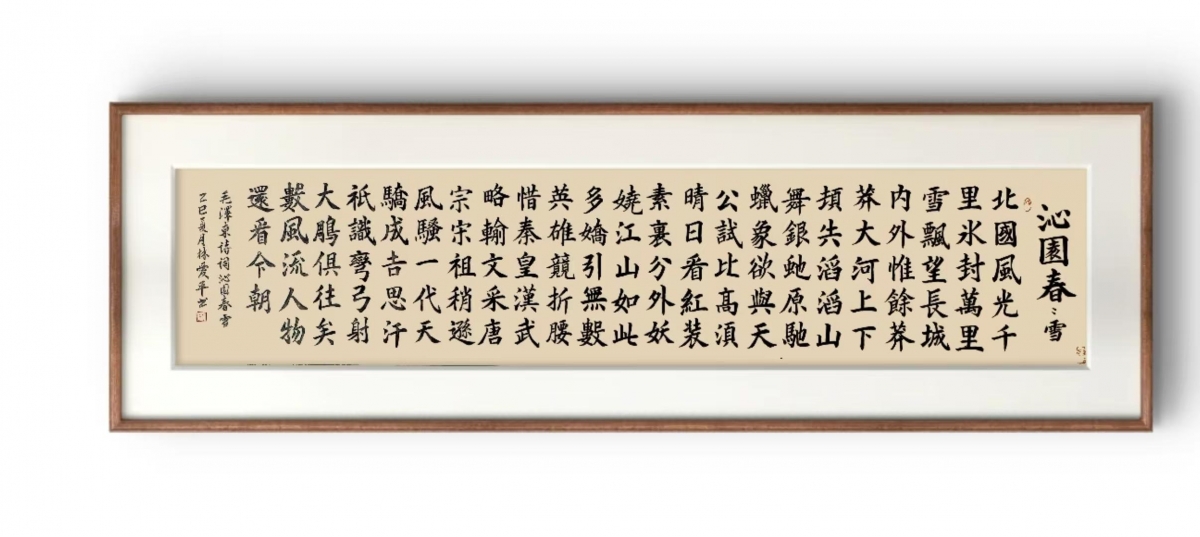 沁園春、雪
北國風光千
里氷封萬里
雪飄望長城
内外惟餘莽
莽大河上下
頓失滔滔山
舞銀虵原馳
蠟象欲與天
公試比髙湏
晴日看紅裝
素裹分外妖
嬈江山如此
多嬌引無數
英雄競折腰
惜秦皇漢武
略輸文采唐
宗宋祖稍遜
風騷一代天
驕成吉思汗
祇識彎弓射
大鵰俱往矣
數風流人物
還看今朝
毛澤東詩詞沁園春雪
乙巳夏月林愛平书